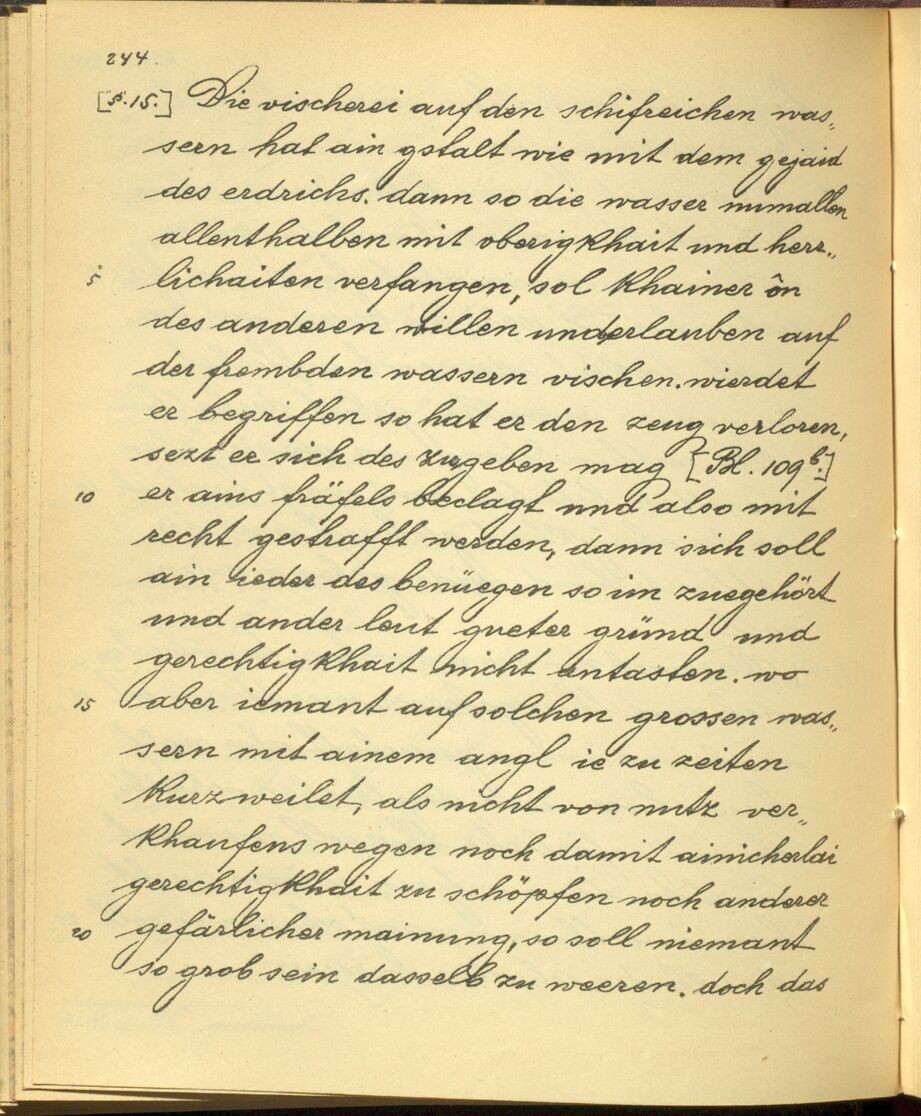 244.
[§.15.] Die vischerei auf den schifreichen was„
sern hat ain gstalt wie mit dem gejaid
des erdrichs. dann so die wasser numallen
allenthalben mit oberigkhait und herr„
5 lichaiten verfangen, sol khainer ôn
des anderen willen underlauben auf
der frembden wassern vischen. wierdet
er begriffen so hat er den zeug verloren,
sezt er sich des zu geben mag [Bl. 109b.]
10 er ains fräfels beclagt und also mit
recht gestrafft werden, dann sich soll
ain ieder des benüegen so im zuegehört
und ander leut gueter gründ und
gerechtigkhait nicht antasten. wo
15 aber iemant auf solchen grossen was„
sern mit ainem angl ie zu zeiten
kurzweilet, als nicht von nutz ver„
khaufens wegen noch damit ainicherlai
gerechtigkhait zu schöpfen noch anderer
20 gefärlicher mainung, so soll niemant
so grob sein dasselb zu weeren. doch das